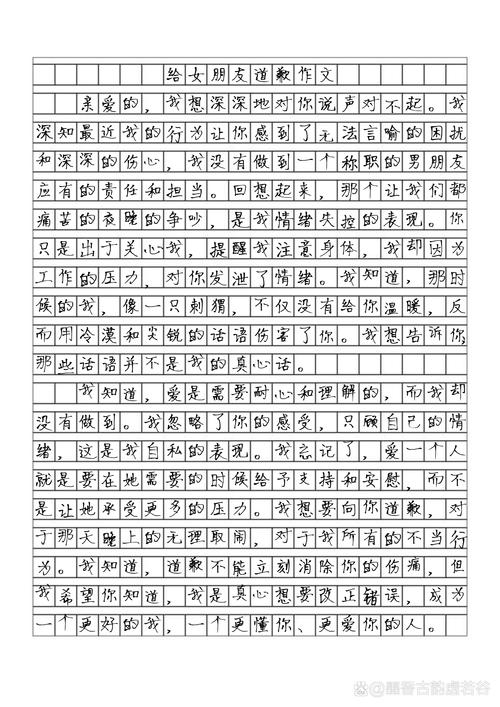 给女朋友道歉作文
亲爱的，我想深深地对你说声对不起。我
深知最近我的行为让你感到了无法言喻的困扰
和深深的伤心，我没有做到一个称职的男朋友
应有的责任和担当。回想起来，那个让我们都
痛苦的夜晚的争吵，是我情绪失控的表现。你
只是出于关心我，提醒我注意身体，我却因为
工作的压力，对你发泄了情绪。我知道，那时
候的我，像一只刺猬，不仅没有给你温暖，反
而用冷漠和尖锐的话语伤害了你。我想告诉你，
那些话语并不是我的真心话。
我知道，爱是需要耐心和理解的，而我却
没有做到。我忽略了你的感受，只顾自己的情
绪，这是我自私的表现。我忘记了，爱一个人
就是要在她需要的时候给予支持和安慰，而不
是让她承受更多的压力。我想要向你道歉，对
于那天晚上的无理取闹，对于我所有的不当行
为。我知道，道歉不能立刻消除你的伤痛，但
我希望你知道，我是真心想要改正错误，成为
一个更好的我，一个更懂你、更爱你的人。